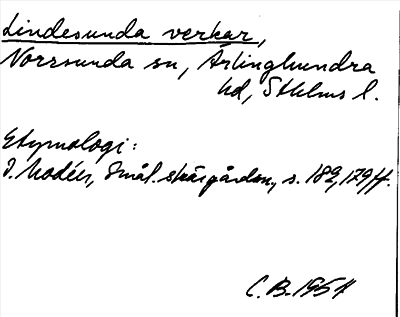 Lindesunda verkar,
Norrsunda sn, Ärlinghundra
hd, Sthlms l.
Etymologi:
I. Modéer, Smål. skärgårdsn., s. 182, 179 ff.
C.B. 1954